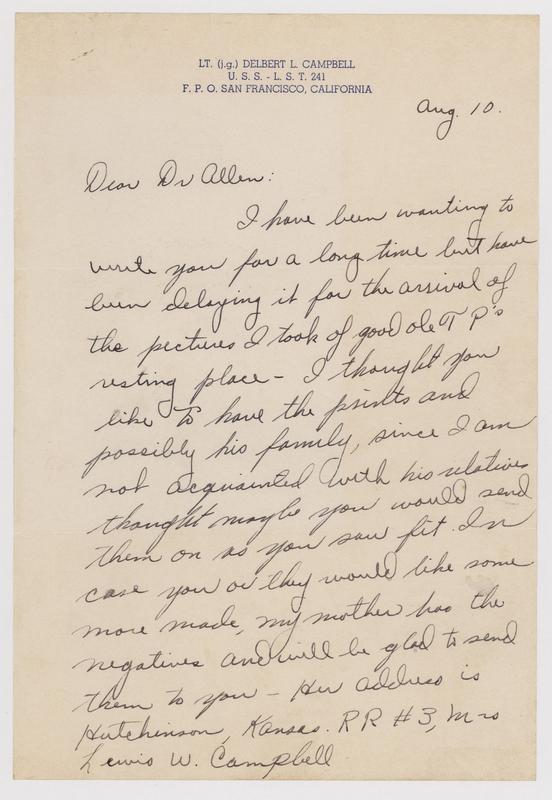 LT. (j.g.) DELBERT L. CAMPBELL
U. S. S. - L. S. T. 241
F. P. O. SAN FRANCISCO, CALIFORNIA
Aug. 10.
Dear Dr Allen:
I have been wanting to
write you for a long time but have
been delaying it for the arrival of
the pectures I took of good ole T P's
resting place - I thought you
like to have the prints and
possibly his family, since I am
not acquainted with his relatives
thought maybe you would send
them on as you saw fit. In
case you or they would like some
more made, my mother has the
negatives and will be glad to send
them to you - Her address is
Hutchinson, Kansas. RR #3, Mrs
Lewis W. Campbell